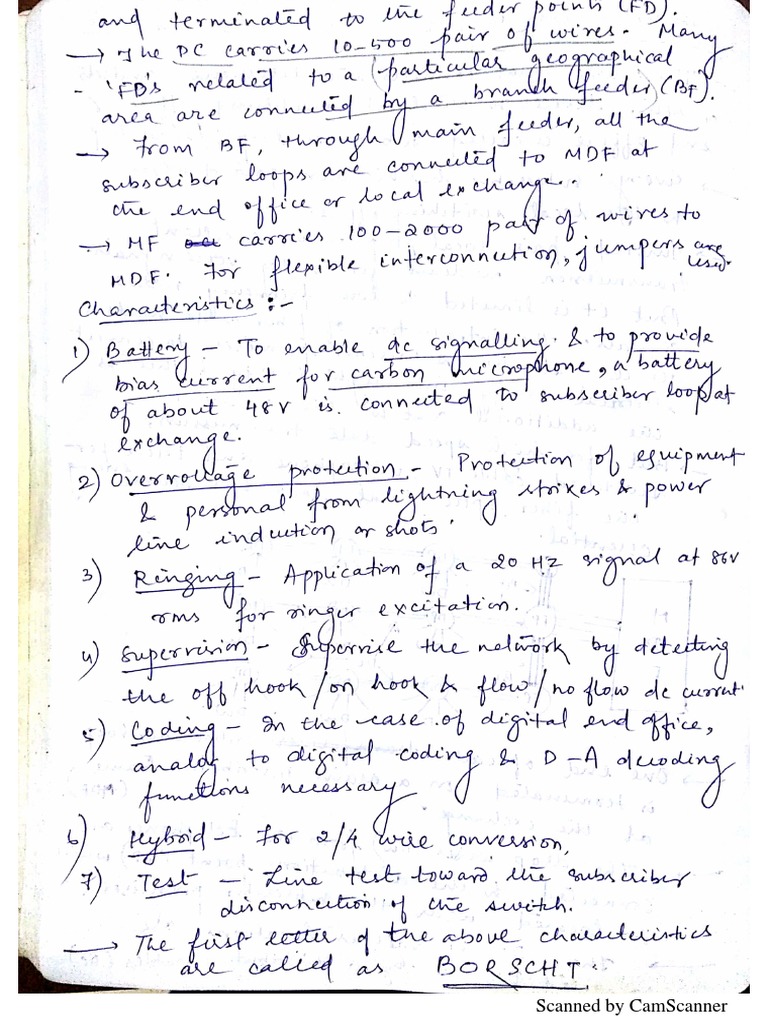 and terminated to the feeder points (FD).
→ The DC carries 10-500 pair of wires. Many
- 'FD's related to a particular geographical
area are connected by a branch feeder (BF).
→ From BF, through main feeder, all the
subscriber loops are connected to MDF at
the end office or local exchange.
→ MF carries 100-2000 pair of wires to
MDF. For flexible interconnection, jumpers are
used.
Characteristics :-
1) Battery - To enable dc signalling & to provide
bias current for carbon microphone, a battery
of about 48V is connected to subscriber loop at
exchange.
2) Overvoltage protection - Protection of equipment
& personal from lightning strikes & power
line induction or shots.
3) Ringing - Application of a 20 HZ signal at 86V
rms for ringer excitation.
4) Supervision - Supervise the network by detecting
the off hook / on hook & flow / no flow dc current
5) Coding - In the case of digital end office,
analog to digital coding & D-A decoding
functions necessary
6) Hybrid - For 2/4 wire conversion,
7) Test - Line test toward the subscriber
disconnection of the switch.
→ The first letter of the above characteristics
are called as BORSCHT.
Scanned by CamScanner